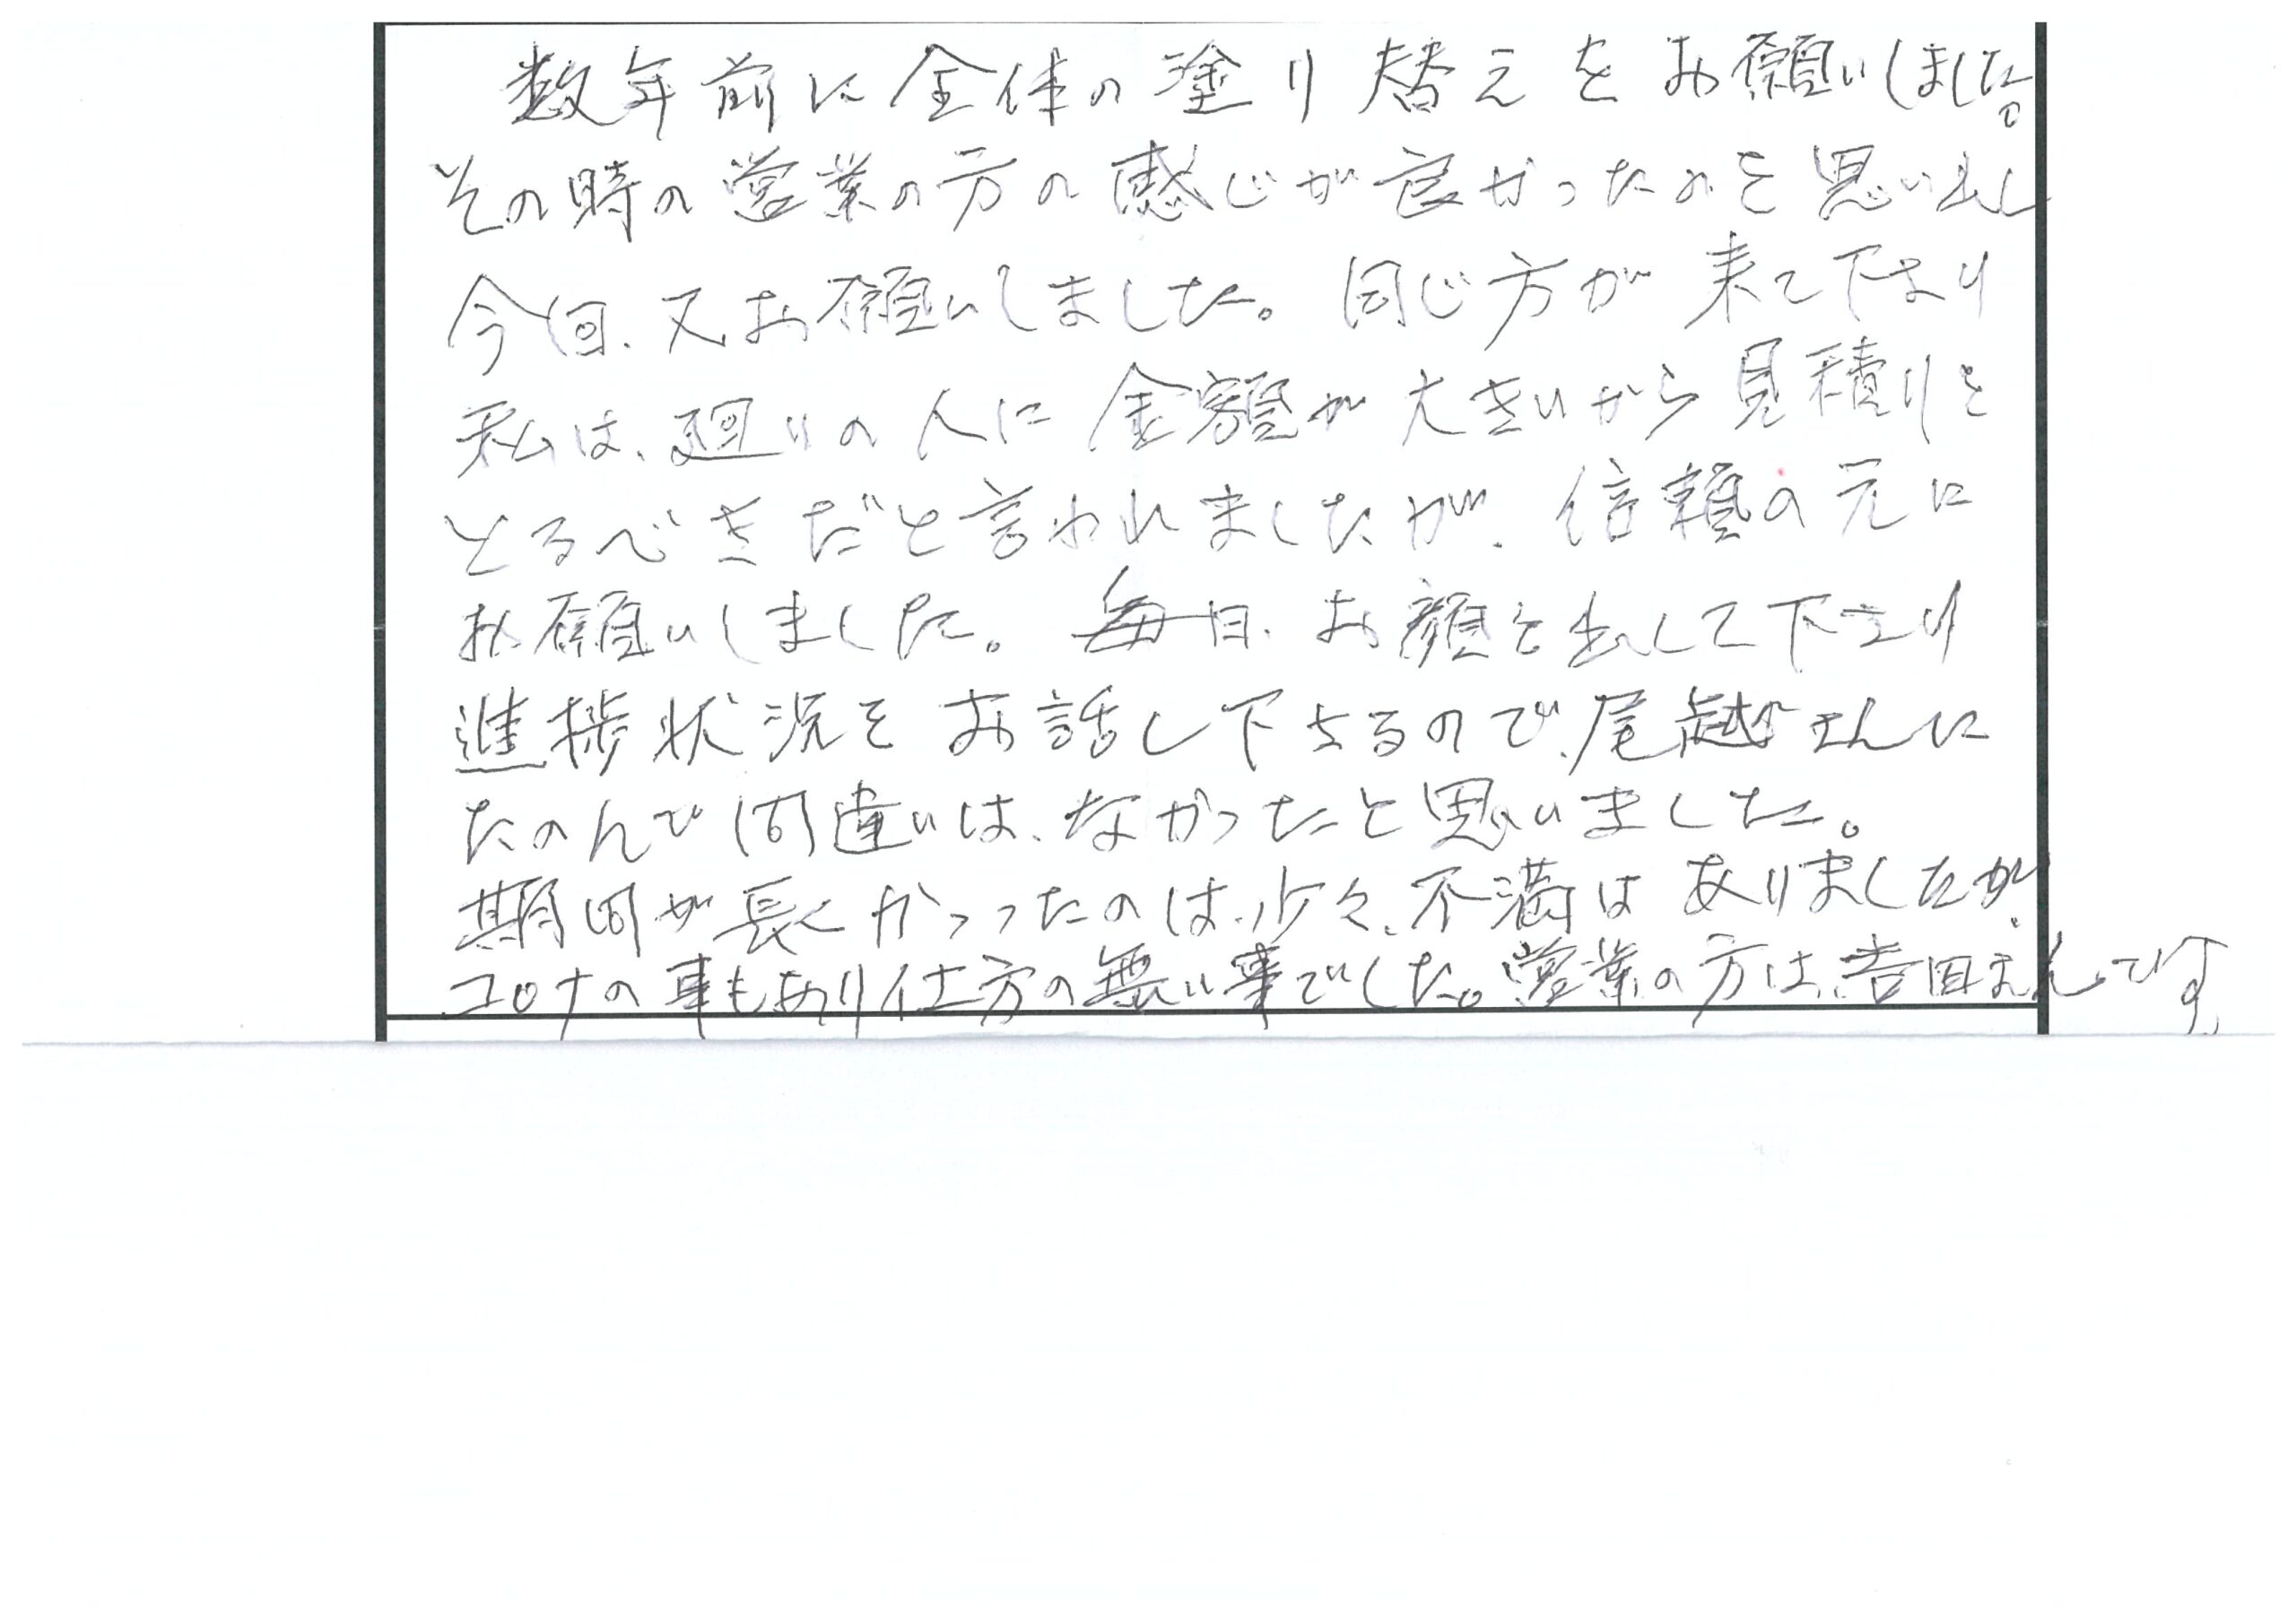 数年前に全体の塗り替えをお願いしました。
その時の営業の方の感じが良かったのを思い出し
今回、又お願いしました。同じ方が来て下さり
私は、廻りの人に金額が大きいから見積りを
とるべきだと言われましたが、信頼の元に
お願いしました。毎日、お顔を出して下さり
進捗状況をお話し下さるので、尾越さんに
たのんで間違いは、なかったと思いました。
期間が長くかかったのは、少々、不満はありましたが、
コロナの事もあり仕方の無い事でした。営業の方は、吉田さんです